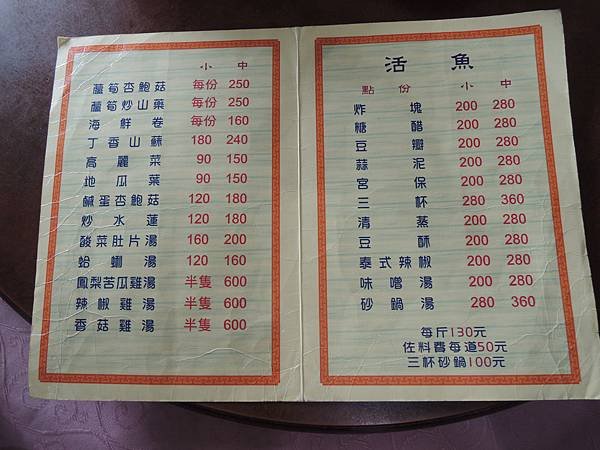 小 中
蘆筍杏鮑菇 每份 250
蘆筍炒山藥 每份 250
海鮮卷 每份 160
丁香山蘇 180 240
高麗菜 90 150
地瓜葉 90 150
鹹蛋杏鮑菇 120 180
炒水蓮 120 180
酸菜肚片湯 160 200
蛤蜊湯 120 160
鳳梨苦瓜雞湯 半隻 600
辣椒雞湯 半隻 600
香菇雞湯 半隻 600
活魚
點份 小 中
炸塊 200 280
糖醋 200 280
豆瓣 200 280
蒜泥 200 280
宮保 200 280
三杯 280 360
清蒸 200 280
豆酥 200 280
泰式辣椒 200 280
味噌湯 200 280
砂鍋湯 280 360
每斤130元
佐料費每道50元
三杯砂鍋100元